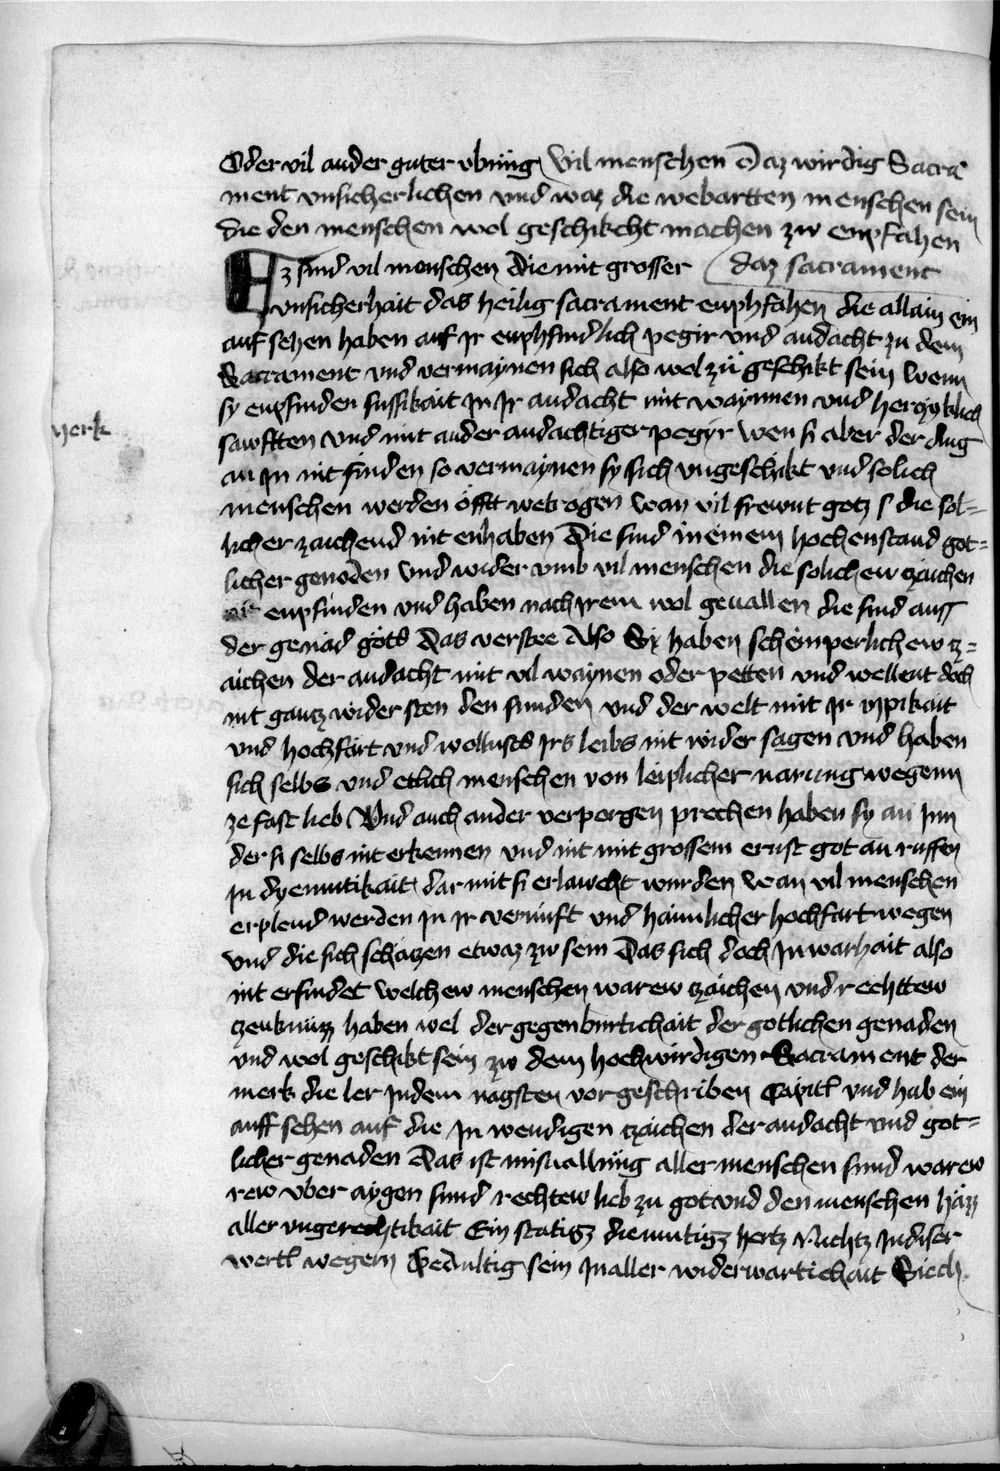 Oder vil ander guter vbung Vil menschen Daz wirdig Sacra
ment vnsicherlichen vnd waz die webartten menschen sein
die den menschen wol geschikcht machen zw enpfahen
daz sacrament
Ez sind vil menschen die mit grosser
vnsicherhait das heilig sacrament enphfahen die allain ein
auf sehen haben auf ir enphfindlich pegir vnd andacht zu dem
Sacrament vnd vermaynen sich also wol zu geschikt sein Wenn
sy enpfinden sussikait in ir andacht mit waynnen vnd herczklich
sawftten vnd mit ander andachtiger pegyr wen si aber der ding
an in nit finden so vermaynen sy sich vngeschikt vnd solich
merk
menschen werden offt webrogen wan vil frewnt gotz die sol=
licher zaichend nit enhaben Die sind in einem hochen stand got=
licher genoden Vnd wider vmb vil menschen die solichew czaichen
enpfinden vnd haben nach irem wol geuallen die sind auss
der genad gots Das verstee Also Sy haben scheinperlichew z=
aichen der andacht mit vil waynen oder petten vnd wellent doch
nit gantz wider sten den sunden vnd der welt mit ir vppikait
vnd hochfart vnd wollusts irs leibs nit wider sagen vnd haben
sich selbs vnd etlich menschen von leiplicher narung wegenn
ze fast lieb Vnd auch ander verporgen prechen haben sy an inn
der si selbs nit erkennen vnd nit mit grossem ernst got an ruffen
in dyemutikait dar mit si erlawcht wurden wan vil menschen
erplend werden in ir vernunft vnd haimlicher hochfart wegen
vnd die sich schatzen etwaz zw sein Das sich doch in warhait also
nit erfindet Welchew menschen warew czaichen vnd rechttew
czeuknuzz haben wel der gegenburtichait der gotlichen genaden
vnd wol geschikt sein zw dem hochwirdigen Sacrament der
merk die ler in dem nagsten vorgeschriben Capitl vnd hab ein
auff sehen auf die in wendigen czaichen der andacht vnd got=
licher genaden Das ist misuallung aller menschen sund warew
rew vber aygen sund rechtew lieb zu got vnd den menschen hazz
aller vngerechtikait Ein statigz diemutigz hertz Nichtz in diser
wertl wegern Gedultig sein in aller widerwartichait Siech